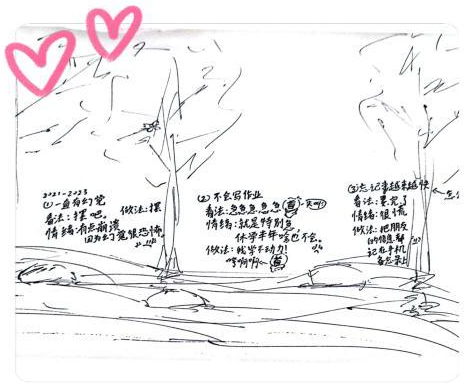 2021-2023
(1) 一直有幻觉
看法: 摆吧。
做法: 摆
情绪: 有点崩溃
因为幻觉很恐怖
(2) 不会写作业
看法: 急急急急急
情绪: 就是特别急
休学半年啥也不会。
做法: 我学不动力!
啊啊啊
(3) 忘记事越来越快
看法: 要完了
情绪: 很慌
做法: 把朋友
的信息都
记在手机
备忘录上